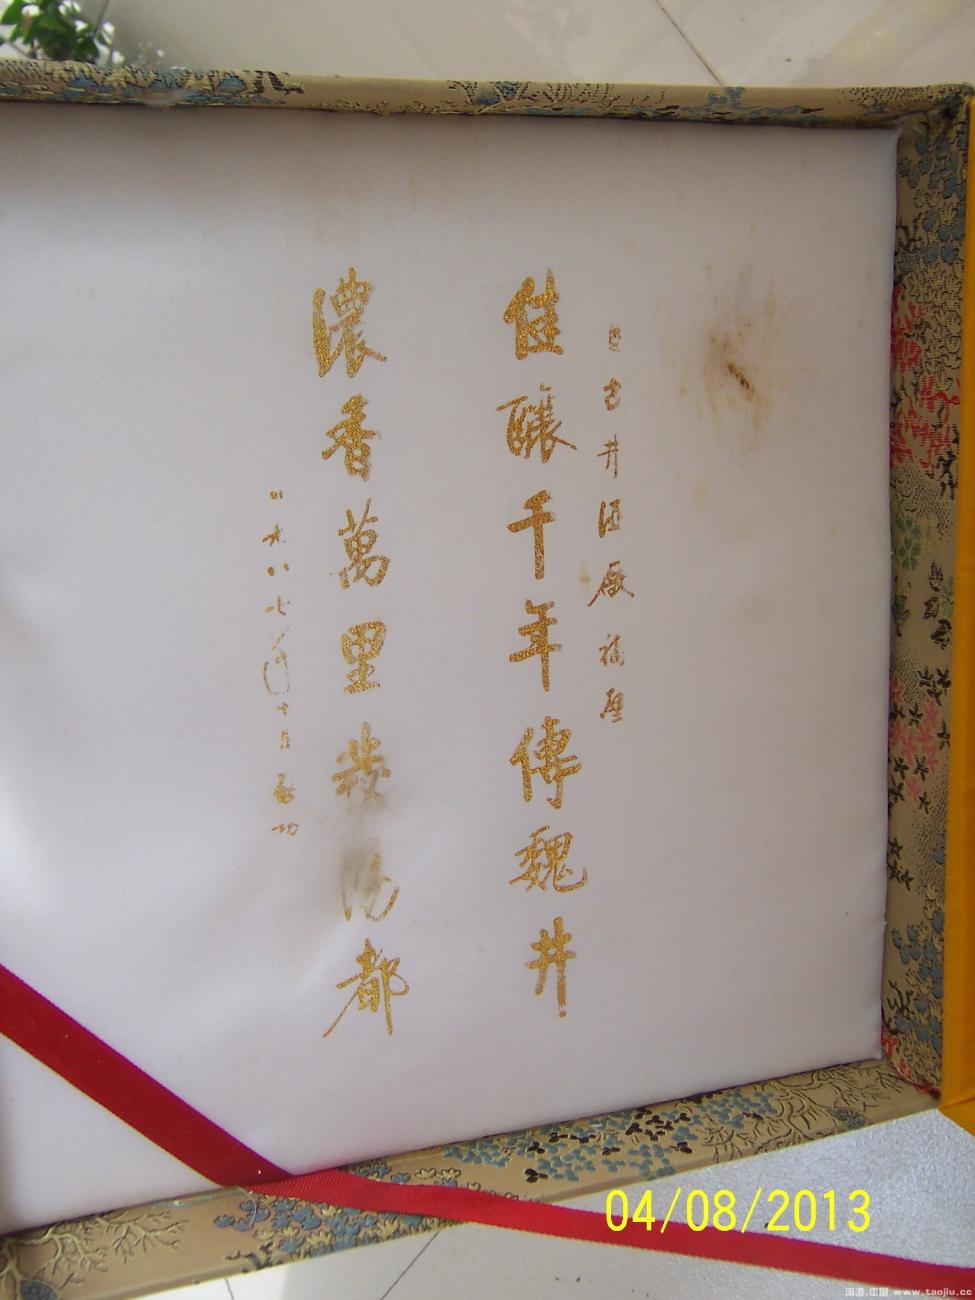 古井酒廠補壁
佳釀千年傳魏井
濃香萬里發湯都
一九八七年十月啟功
04/08/2013
www.taojiu.cc